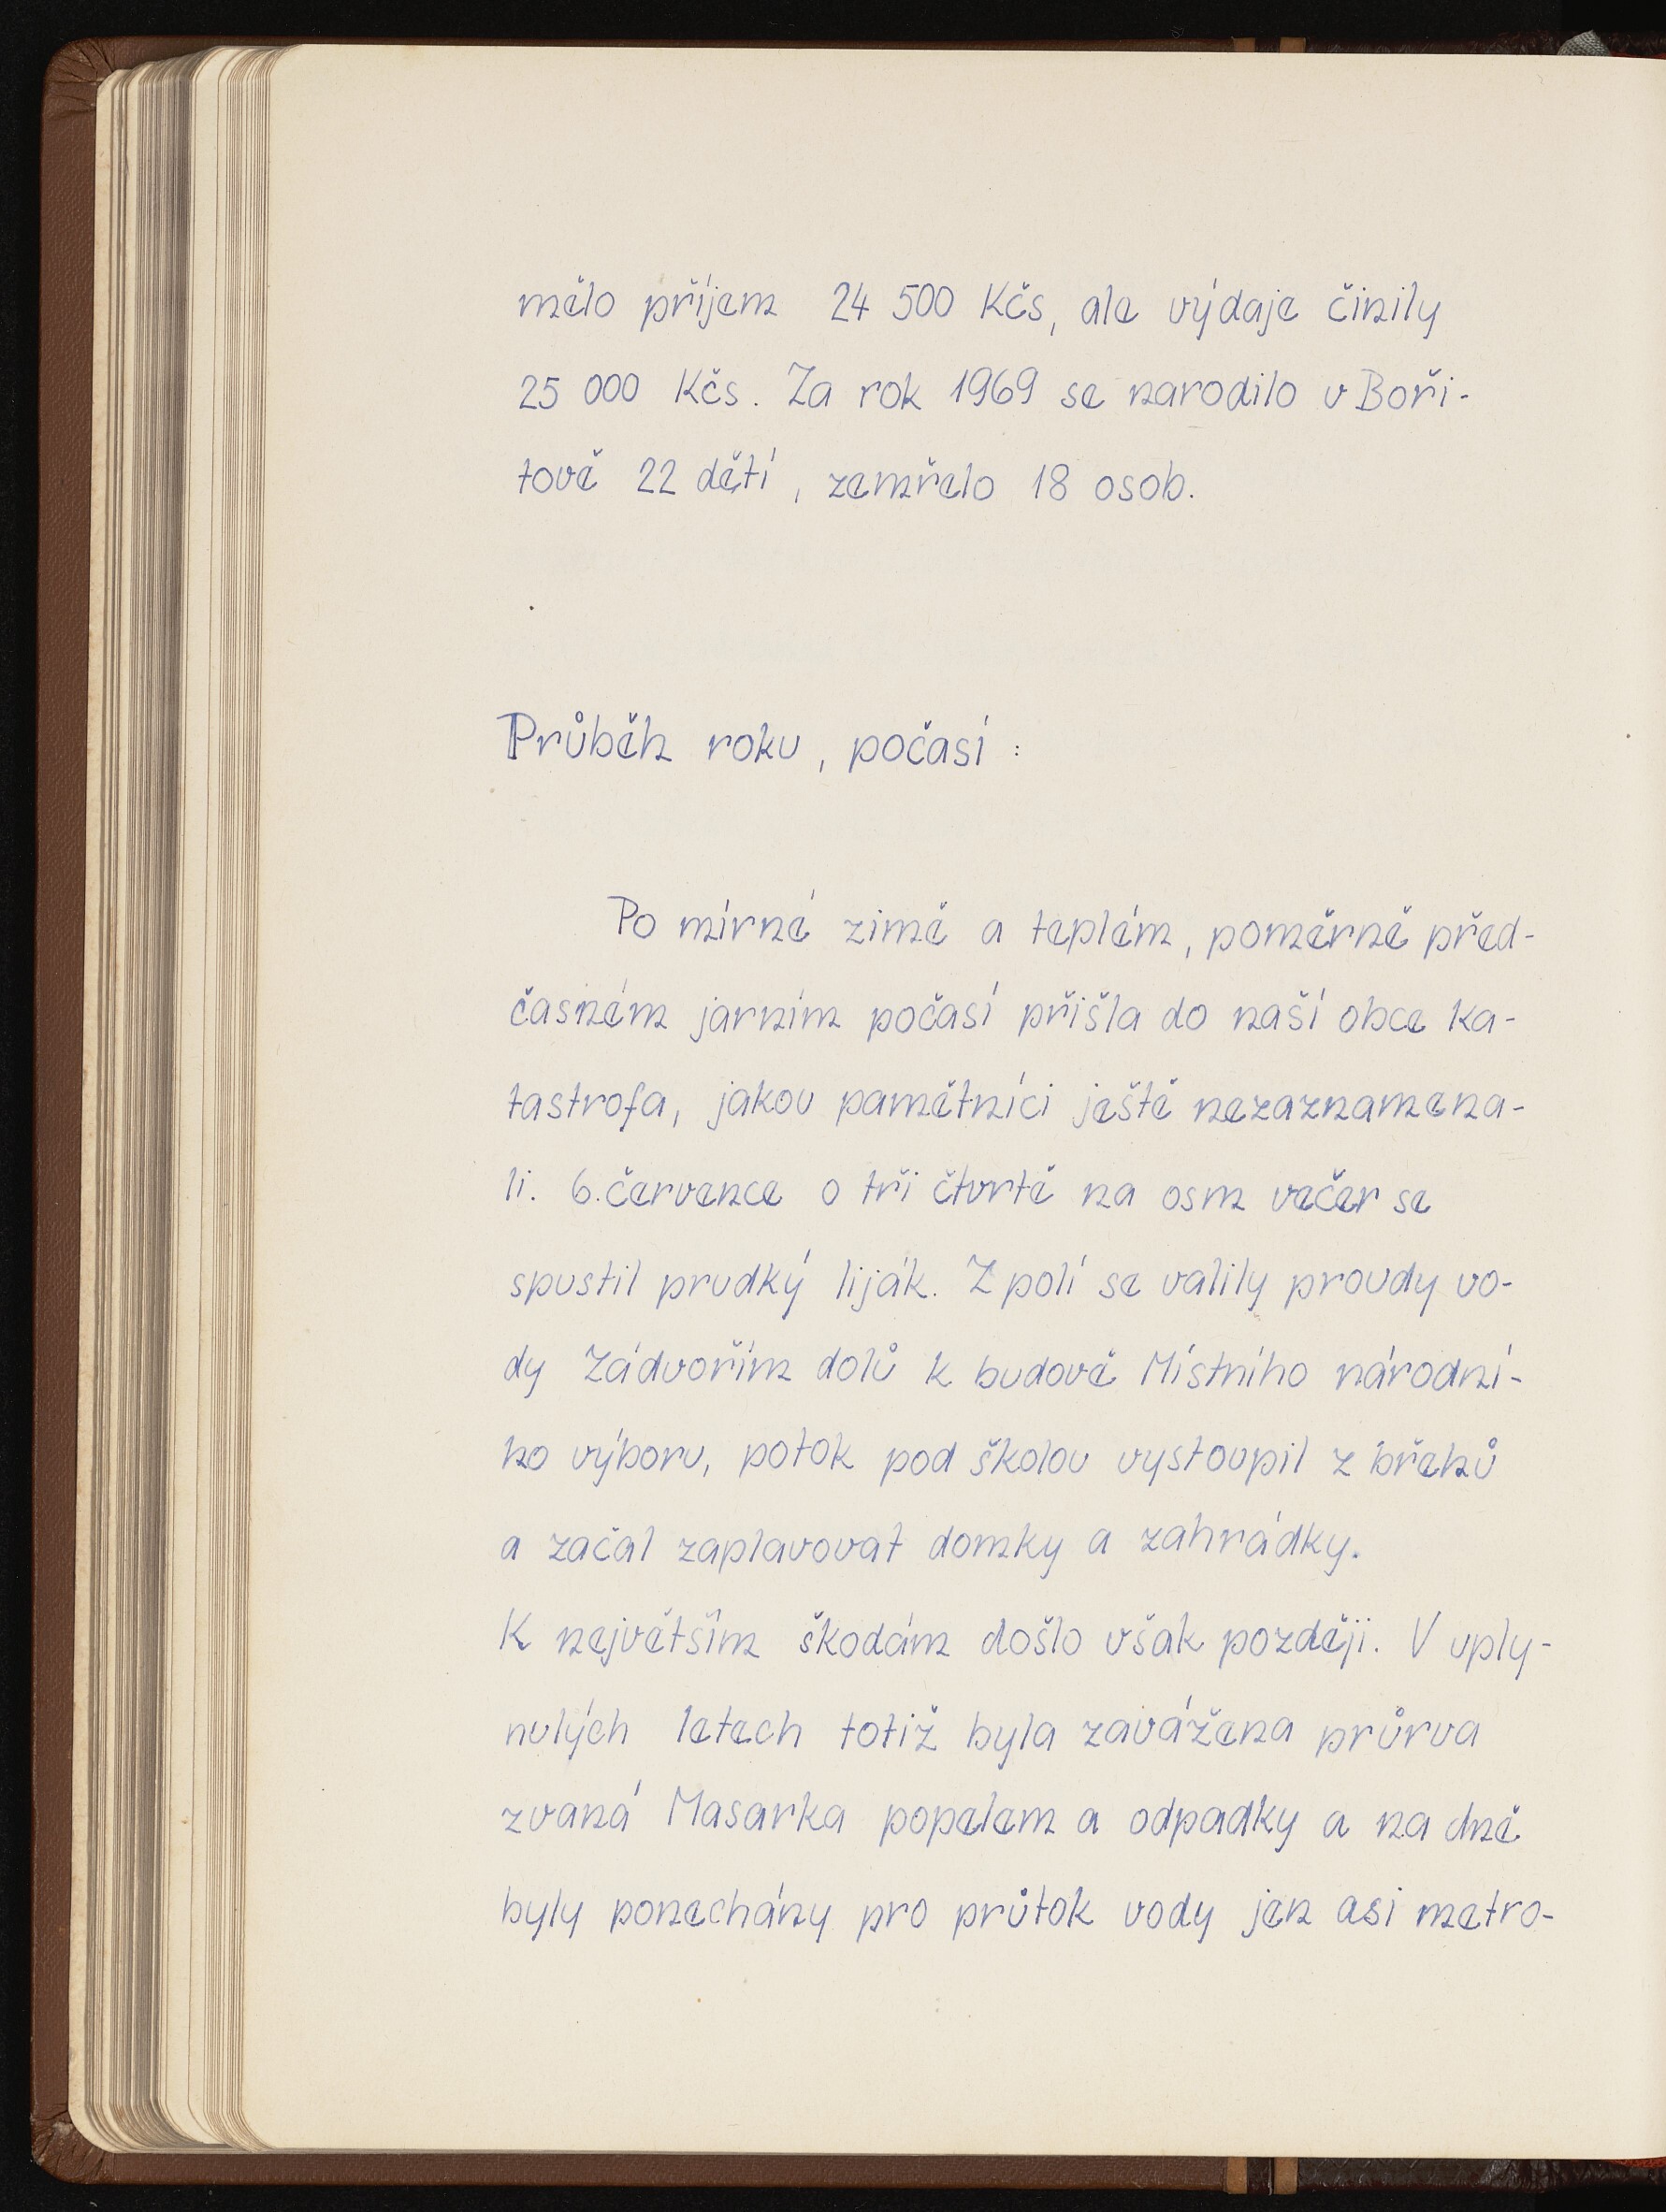 mělo příjem 24 500 Kčs, ale výdaje činily
25 000 Kčs. Za rok 1969 se narodilo v Boři-
tově 22 dětí, zemřelo 18 osob.
Průběh roku, počasí :
Po mírné zimě a teplém, poměrně před-
časném jarním počasí přišla do naší obce ka-
tastrofa, jakou pamětníci ještě nezaznamena-
li. 6. července o tři čtvrtě na osm večer se
spustil prudký liják. Z polí se valily proudy vo-
dy Zádvořím dolů k budově Místního národní-
ho výboru, potok pod školou vystoupil z břehů
a začal zaplavovat domky a zahrádky.
K největším škodám došlo však později. V uply-
nulých letech totiž byla zavážena průrva
zvaná Masarka popelem a odpadky a na dně
byly ponechány pro průtok vody jen asi metro-